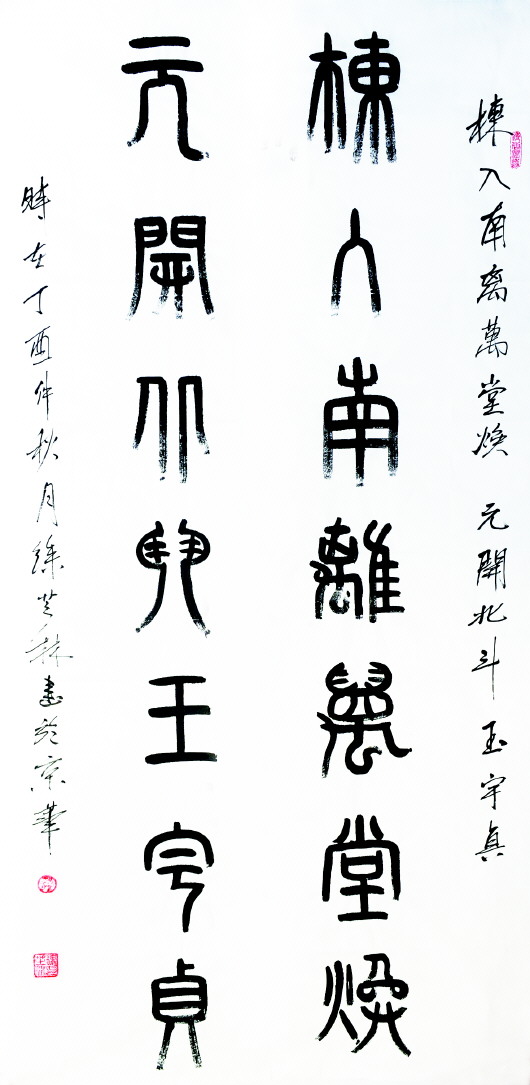 棟入南离萬堂焕 元開北斗玉宇真
棟入南離萬堂煥
元開北斗玉宇貞
時在丁酉仲秋月徐芝書於京華